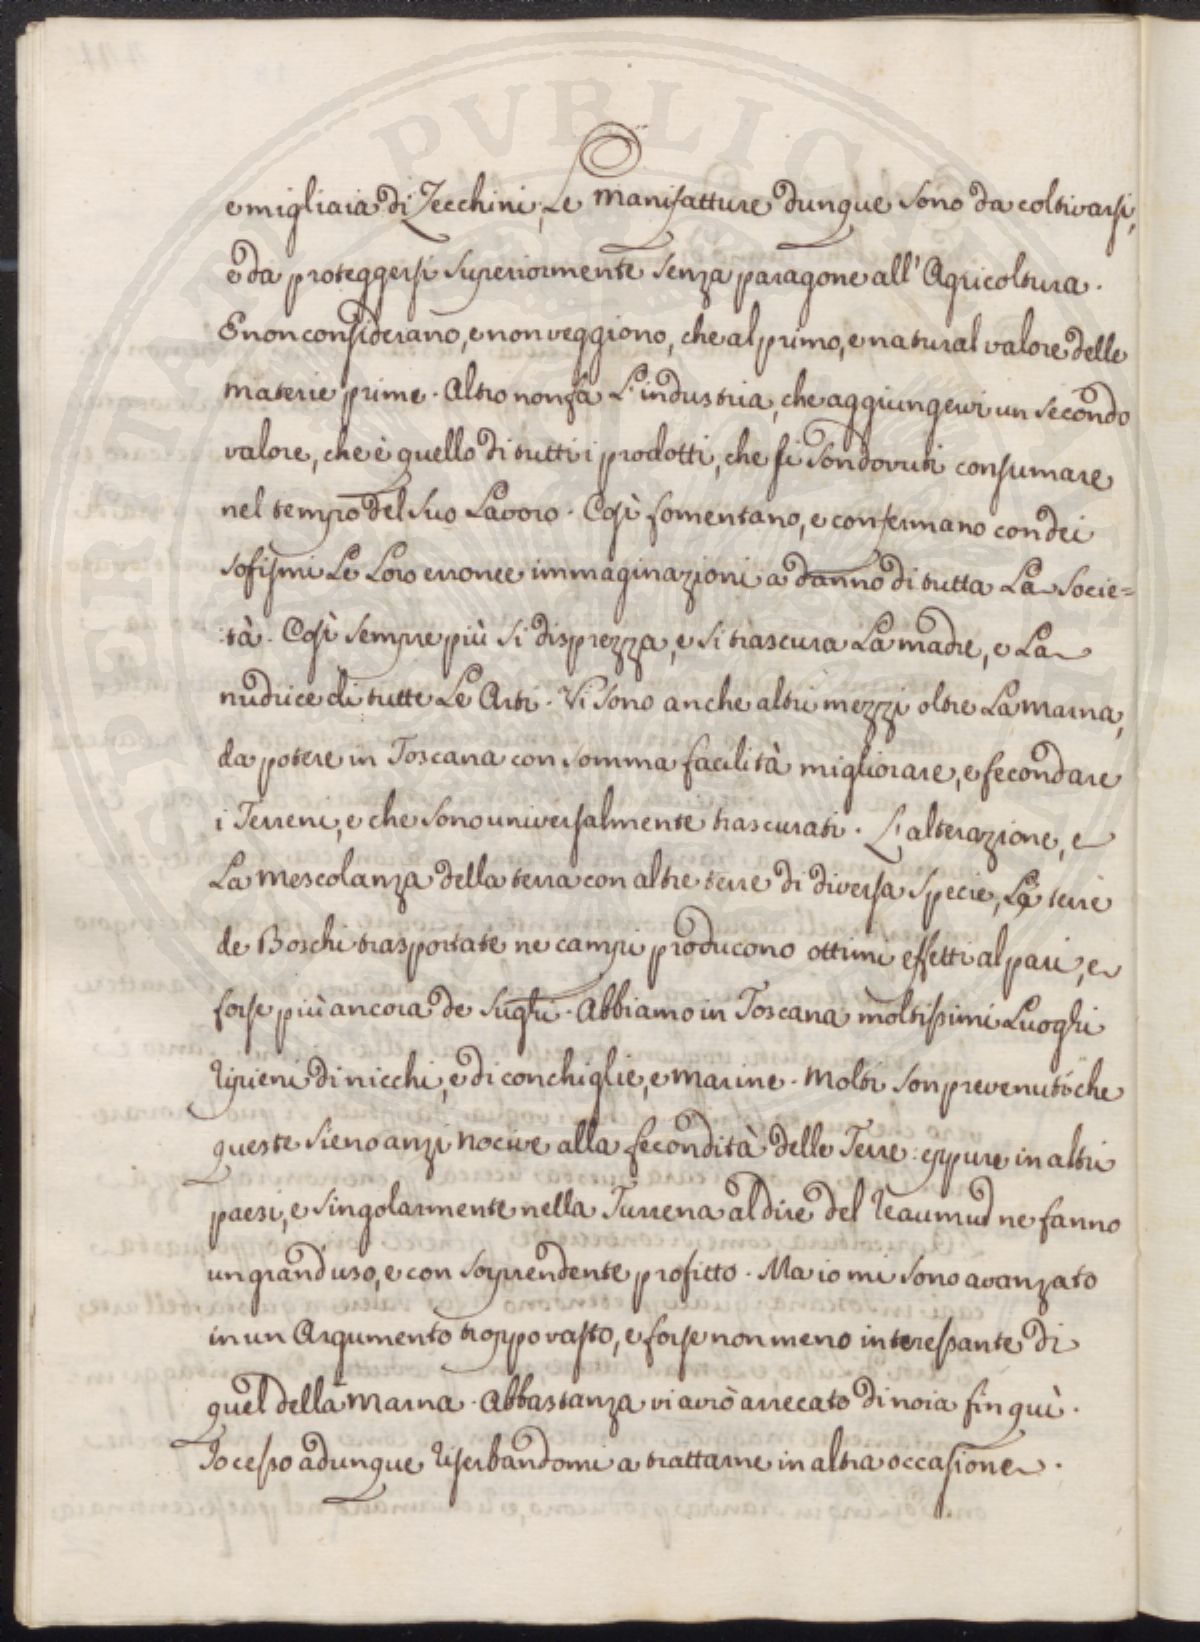 e migliaia di Zecchini; Le Manifatture dunque sono da coltivarsi,
e da proteggersi superiormente senza paragone all' Agricoltura.
E non considerano, e non veggiono, che al primo, e natural valore delle
materie prime. Altro non fà L'industria, che aggiungervi un secondo
valore, che è quello di tutti i prodotti, che si son dovuti consumare
nel tempo del suo Lavoro. Così fomentano, e confermano con dei
sofismi Le Loro erronee immaginazioni a danno di tutta La Socie=
:tà. Così sempre più si disprezza, e si trascura La madre, e La
nudrice di tutte Le Arti. Vi sono anche altri mezzi oltre La Marna,
da potere in Toscana con somma facilità migliorare, e fecondare
i Terreni, e che sono universalmente trascurati. L'alterazione, e
La mescolanza della terra con altre terre di diversa specie, Le terre
de Boschi trasportate ne campi producono ottimi effetti al pari, e
forse più ancora de sughi. Abbiamo in Toscana moltissimi Luoghi
ripieni di nicchi, e di conchiglie, e marine. Molti son prevenuti che
queste sieno anzi nocive alla fecondità delle Terre: eppure in altri
paesi, e singolarmente nella Turrena al dire del Reaumud ne fanno
un grand uso, e con sorprendente profitto. Ma io mi sono avanzato
in un Argumento troppo vasto, e forse non meno interessante di
quel della Marna. Abbastanza vi avrò arrecato di noia fin quì.
Io cesso adunque riserbandomi a trattarne in altra occasione.
PERITAT PVBLICAE